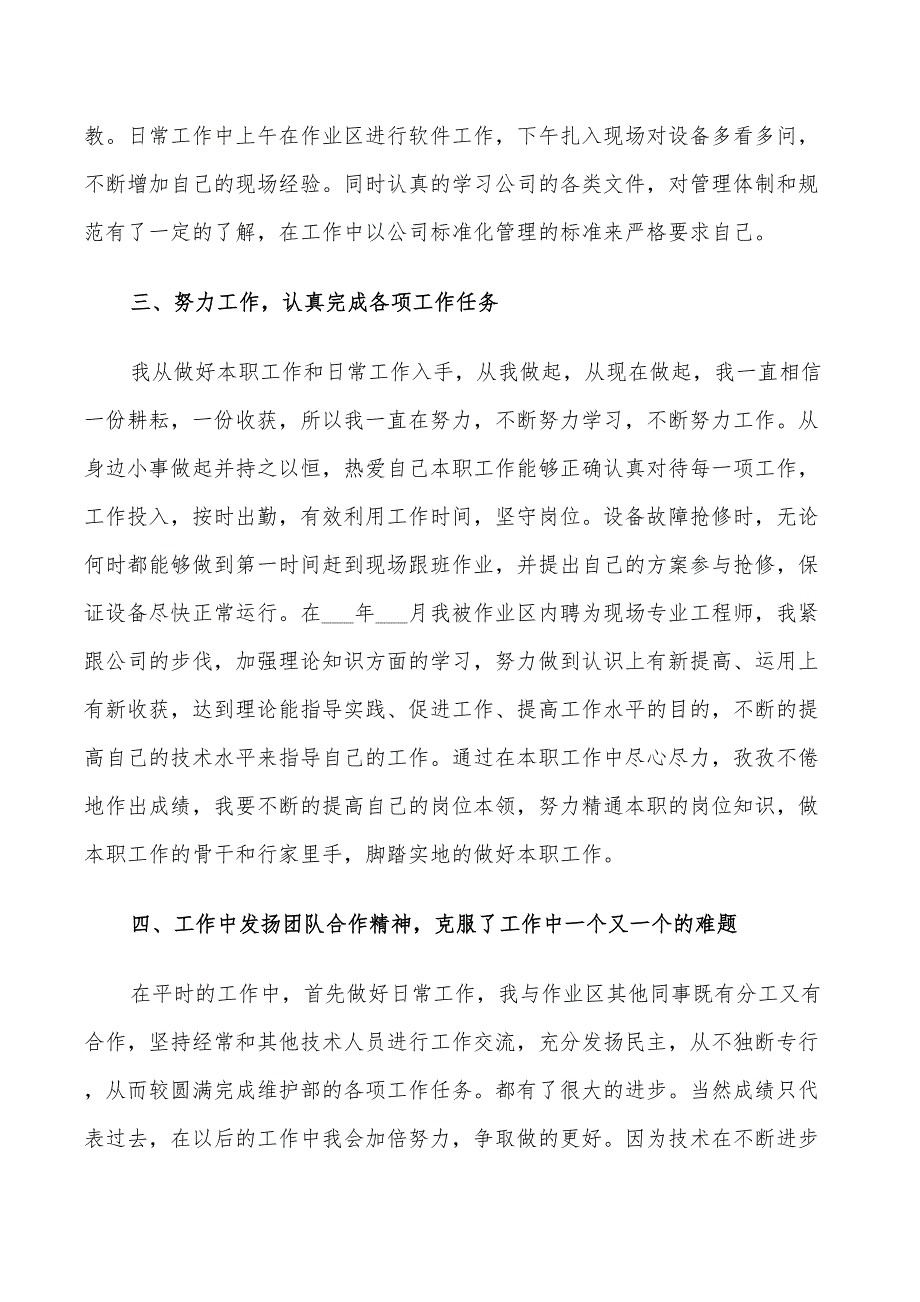 教。日常工作中上午在作业区进行软件工作，下午扎入现场对设备多看多问，
不断增加自己的现场经验。同时认真的学习公司的各类文件，对管理体制和规
范有了一定的了解，在工作中以公司标准化管理的标准来严格要求自己。
三、努力工作，认真完成各项工作任务
我从做好本职工作和日常工作入手，从我做起，从现在做起，我一直相信
一份耕耘，一份收获，所以我一直在努力，不断努力学习，不断努力工作。从
身边小事做起并持之以恒，热爱自己本职工作能够正确认真对待每一项工作，
工作投入，按时出勤，有效利用工作时间，坚守岗位。设备故障抢修时，无论
何时都能够做到第一时间赶到现场跟班作业，并提出自己的方案参与抢修，保
证设备尽快正常运行。在___年___月我被作业区内聘为现场专业工程师，我紧
跟公司的步伐，加强理论知识方面的学习，努力做到认识上有新提高、运用上
有新收获，达到理论能指导实践、促进工作、提高工作水平的目的，不断的提
高自己的技术水平来指导自己的工作。通过在本职工作中尽心尽力，孜孜不倦
地作出成绩，我要不断的提高自己的岗位本领，努力精通本职的岗位知识，做
本职工作的骨干和行家里手，脚踏实地的做好本职工作。
四、工作中发扬团队合作精神，克服了工作中一个又一个的难题
在平时的工作中，首先做好日常工作，我与作业区其他同事既有分工又有
合作，坚持经常和其他技术人员进行工作交流，充分发扬民主，从不独断专行
，从而较圆满完成维护部的各项工作任务。都有了很大的进步。当然成绩只代
表过去，在以后的工作中我会加倍努力，争取做的更好。因为技术在不断进步